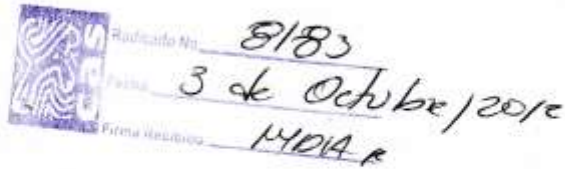 Radicado No. 8183
Fecha 3 de Octubre/2012
Firma Recibido